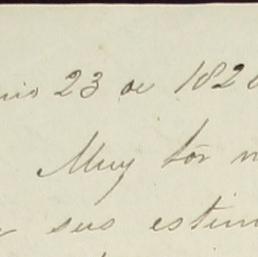 23 de 182
Muy Sor
sus estim